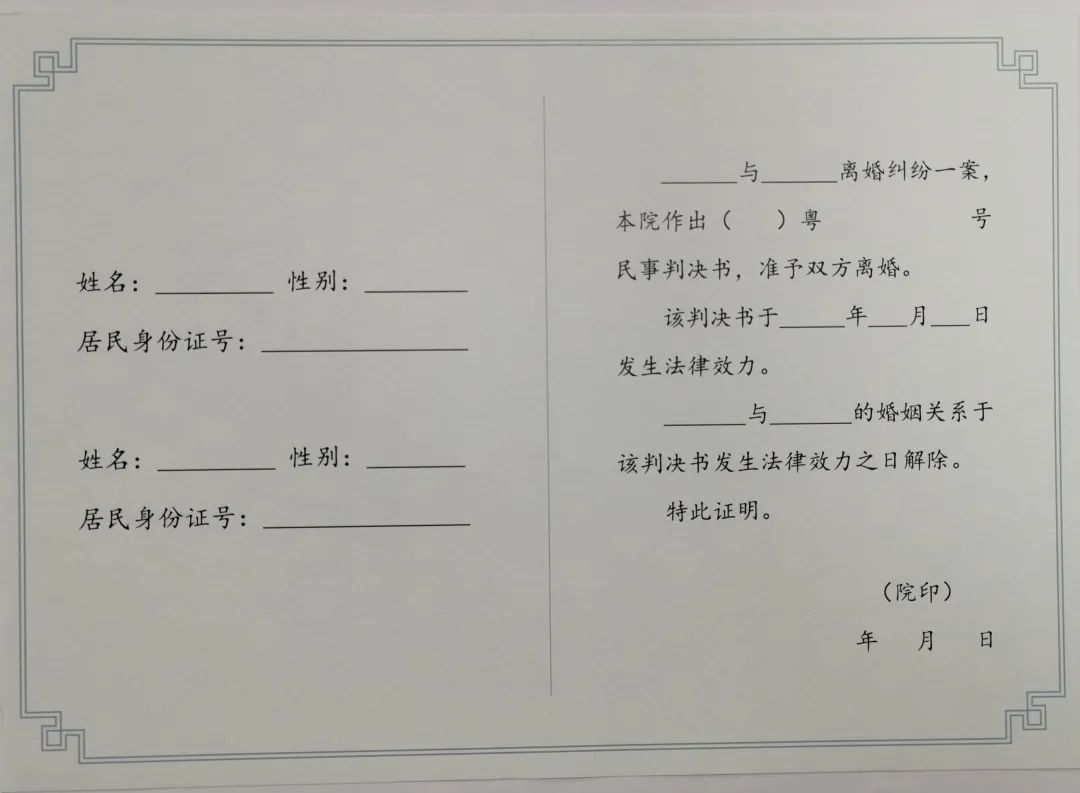 姓名：________ 性别：_______
居民身份证号：______________
姓名：________ 性别：_______
居民身份证号：______________
______与______离婚纠纷一案，
本院作出（　　）粤　　　　　　号
民事判决书，准予双方离婚。
该判决书于_____年___月___日
发生法律效力。
______与______的婚姻关系于
该判决书发生法律效力之日解除。
特此证明。
（院印）
年　月　日